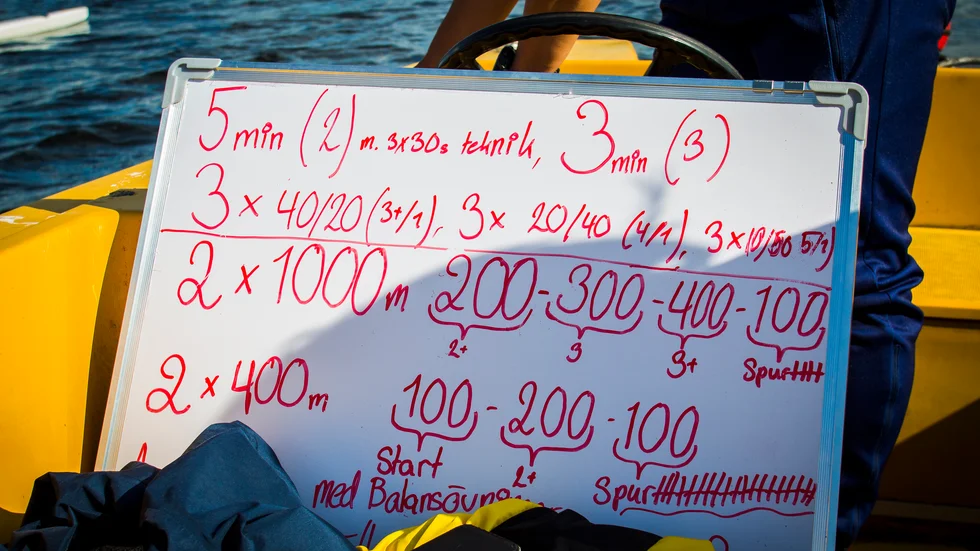 5 min (2) m. 3x30s teknik, 3 min (3)
3 x 40/20 (3+/1), 3 x 20/40 (4/1), 3 x 10/50 5/1)
2 x 1000 m 200 - 300 - 400 - 100
2+ 3 3+ Spurtttt
2 x 400 m 100 - 200 - 100
Start 2+ Spurttttttttttttttt
med